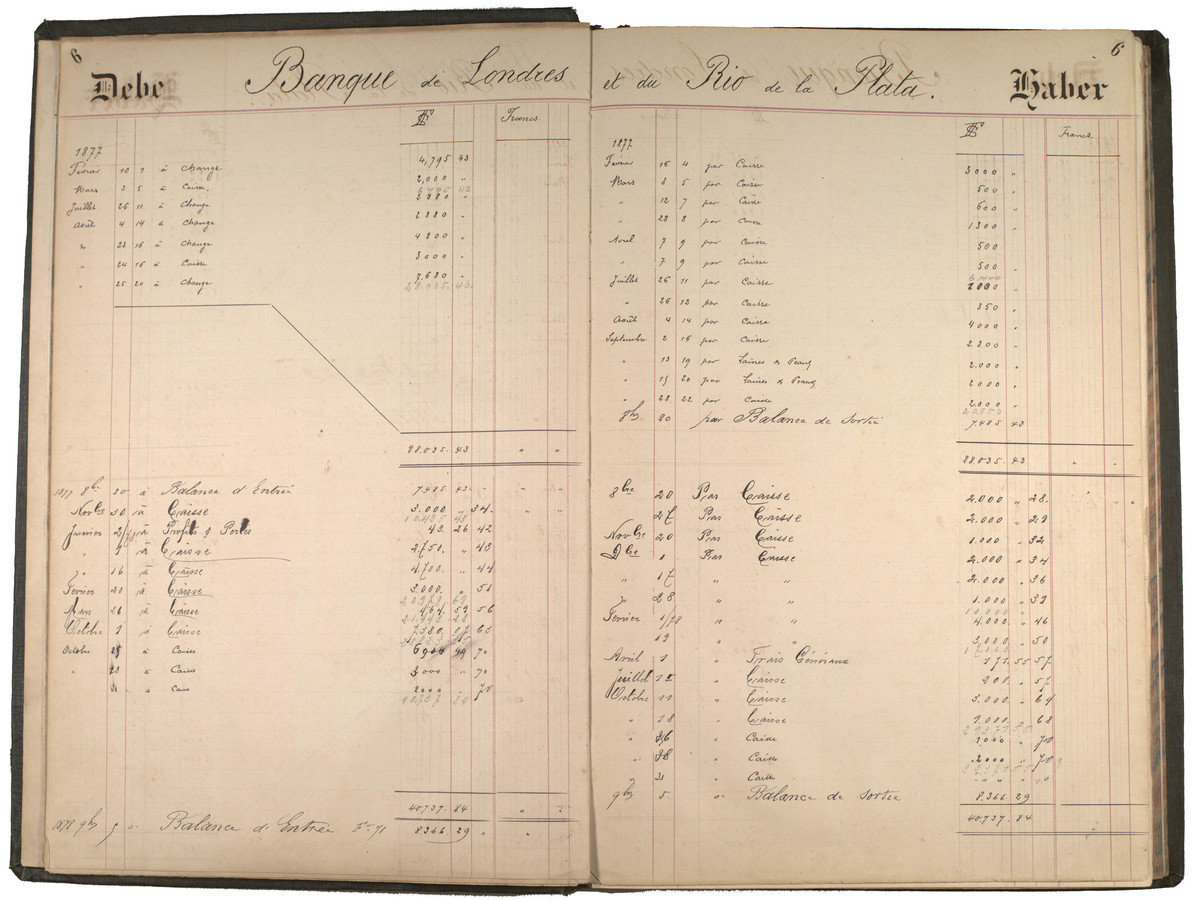 6
Debe Banque de Londres
$F Francs.
1877
Février 10 1 à Change 4,795 43
Mars 3 5 à Caisse. 2,000 "
6795 43
Juillet 26 11 à Change 2880 "
Août 4 14 à Change 2880 "
" 23 16 à Change 4800 "
" 24 16 à Caisse 3000 "
" 25 20 à Change 7680 "
28.035. 43.
28.035. 43 " "
1877 8bre 20 a Balance d'Entrée 7.485 43. - - -
Novbre 30 à Caisse 3.000 " 34. " "
10.485 43
Janvier 2/78 à Profits & Pertes 43. 26 42
" 9 à Caisse 2.750. " 43
" 16 à Caisse 4.700. " 44
Fevrier 20 à Caisse 3.000. " 51
20.978 69
Mars 26 à Caisse 464. 59 56
21.443 28
Octobre 9 à Caisse 7.380. 07 63
Octobre à Caisse 49 70
" à Caisse 3000 " 70
31 à Caisse 2000 70
40.737
40.737. 84 "
1878 9bre 5 a Balance d'Entrée Fo 71 8366 29 " "
6
et du Rio de la Plata. Haber
$F Francs.
1877
Février 16 4 par Caisse 3000 "
Mars 3 5 par Caisse 500 "
" 12 7 par Caisse 600 "
" 28 8 par Caisse 1300 "
Avril 7 9 par Caisse 500 "
" 7 9 par Caisse 500 "
6400
Juillet 26 11 par Caisse "
" 26 12 par Caisse 350 "
Août 4 14 par Caisse 4000 "
Septembre 2 16 par Caisse 2300 "
" 13 19 par Laines & Peaux 2.000 "
" 15 20 par Laines & Peaux 2000 "
" 28 22 par Caisse 2.000 "
20.550
8bre 20 par Balance de Sortie 7.485 43
28.035. 43 " "
8bre 20 Par Caisse 2.000 " 28. " " "
" 27 Par Caisse 2.000 " 29
Novbre 20 Par Caisse 1.000 " 32
Dbre 1 Par Caisse 2.000 " 34
" 17 " " 2.000 " 36
" 28 " " 1.000 " 39
10.000
Fevrier 1/78 " " 4.000 " 46
" 19 " " 3.000 " 50
17.000
Avril 1 " Frais Généraux 171. 55 57
Juillet 15 " Caisse 300. " 57
Octobre 11 " Caisse 3.000. " 64
" 18 " Caisse 9.000 " 68
" " Caisse " 70
" " Caisse 2000 " 70
" 31 " Caisse
9bre 5 " Balance de Sortie 8.366 29
40.737. 84